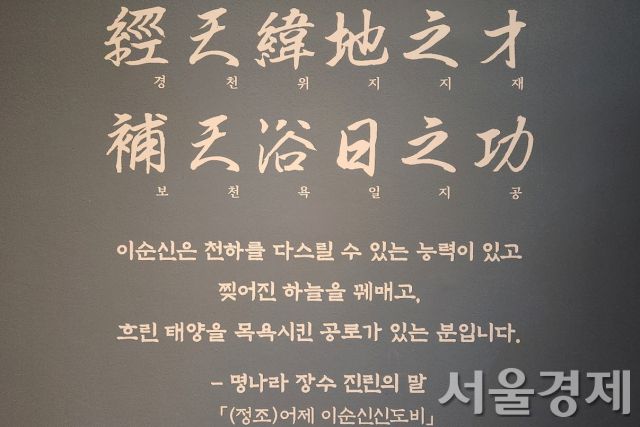 經天緯地之才
경천위지지재
補天浴日之功
보천욕일지공
이순신은 천하를 다스릴 수 있는 능력이 있고
찢어진 하늘을 꿰매고,
흐린 태양을 목욕시킨 공로가 있는 분입니다.
– 명나라 장수 진린의 말
「(정조)어제 이순신신도비」
서울경제